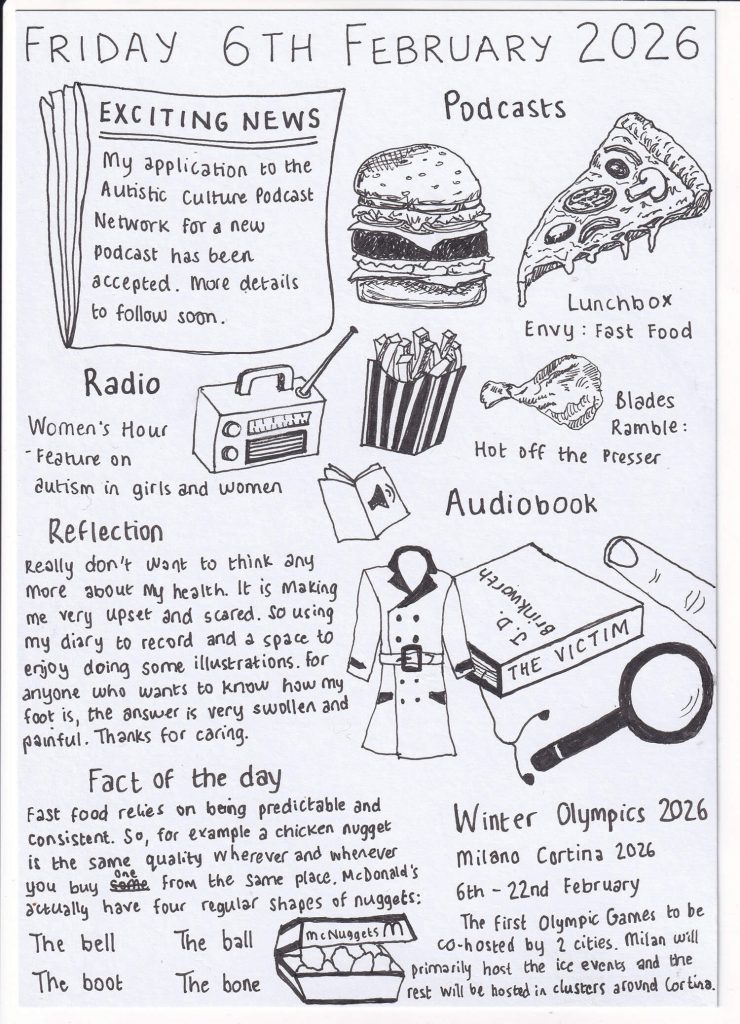 FRIDAY 6TH FEBRUARY 2026
EXCITING NEWS
My application to the
Autistic Culture Podcast
Network for a new
Podcast has been
accepted. More details
to follow soon.
Podcasts
Lunchbox
Envy: Fast Food
Blades
Ramble:
Hot off the Presser
Radio
Women's Hour
- Feature on
autism in girls and women
Audiobook
J. D.
Brinkworth
THE VICTIM
Reflection
Really don't want to think any
more about my health. It is making
me very upset and scared. So using
my diary to record and a space to
enjoy doing some illustrations. For
anyone who wants to know how my
foot is, the answer is very swollen and
painful. Thanks for caring.
Fact of the day
Fast food relies on being predictable and
consistent. So, for example a chicken nugget
is the same quality wherever and whenever
you buy one from the same place. McDonald's
actually have four regular shapes of nuggets:
The bell The ball
The boot The bone
McNuggets M
Winter Olympics 2026
Milano Cortina 2026
6th - 22nd February
The first Olympic Games to be
co-hosted by 2 cities. Milan will
primarily host the ice events and the
rest will be hosted in clusters around Cortina.